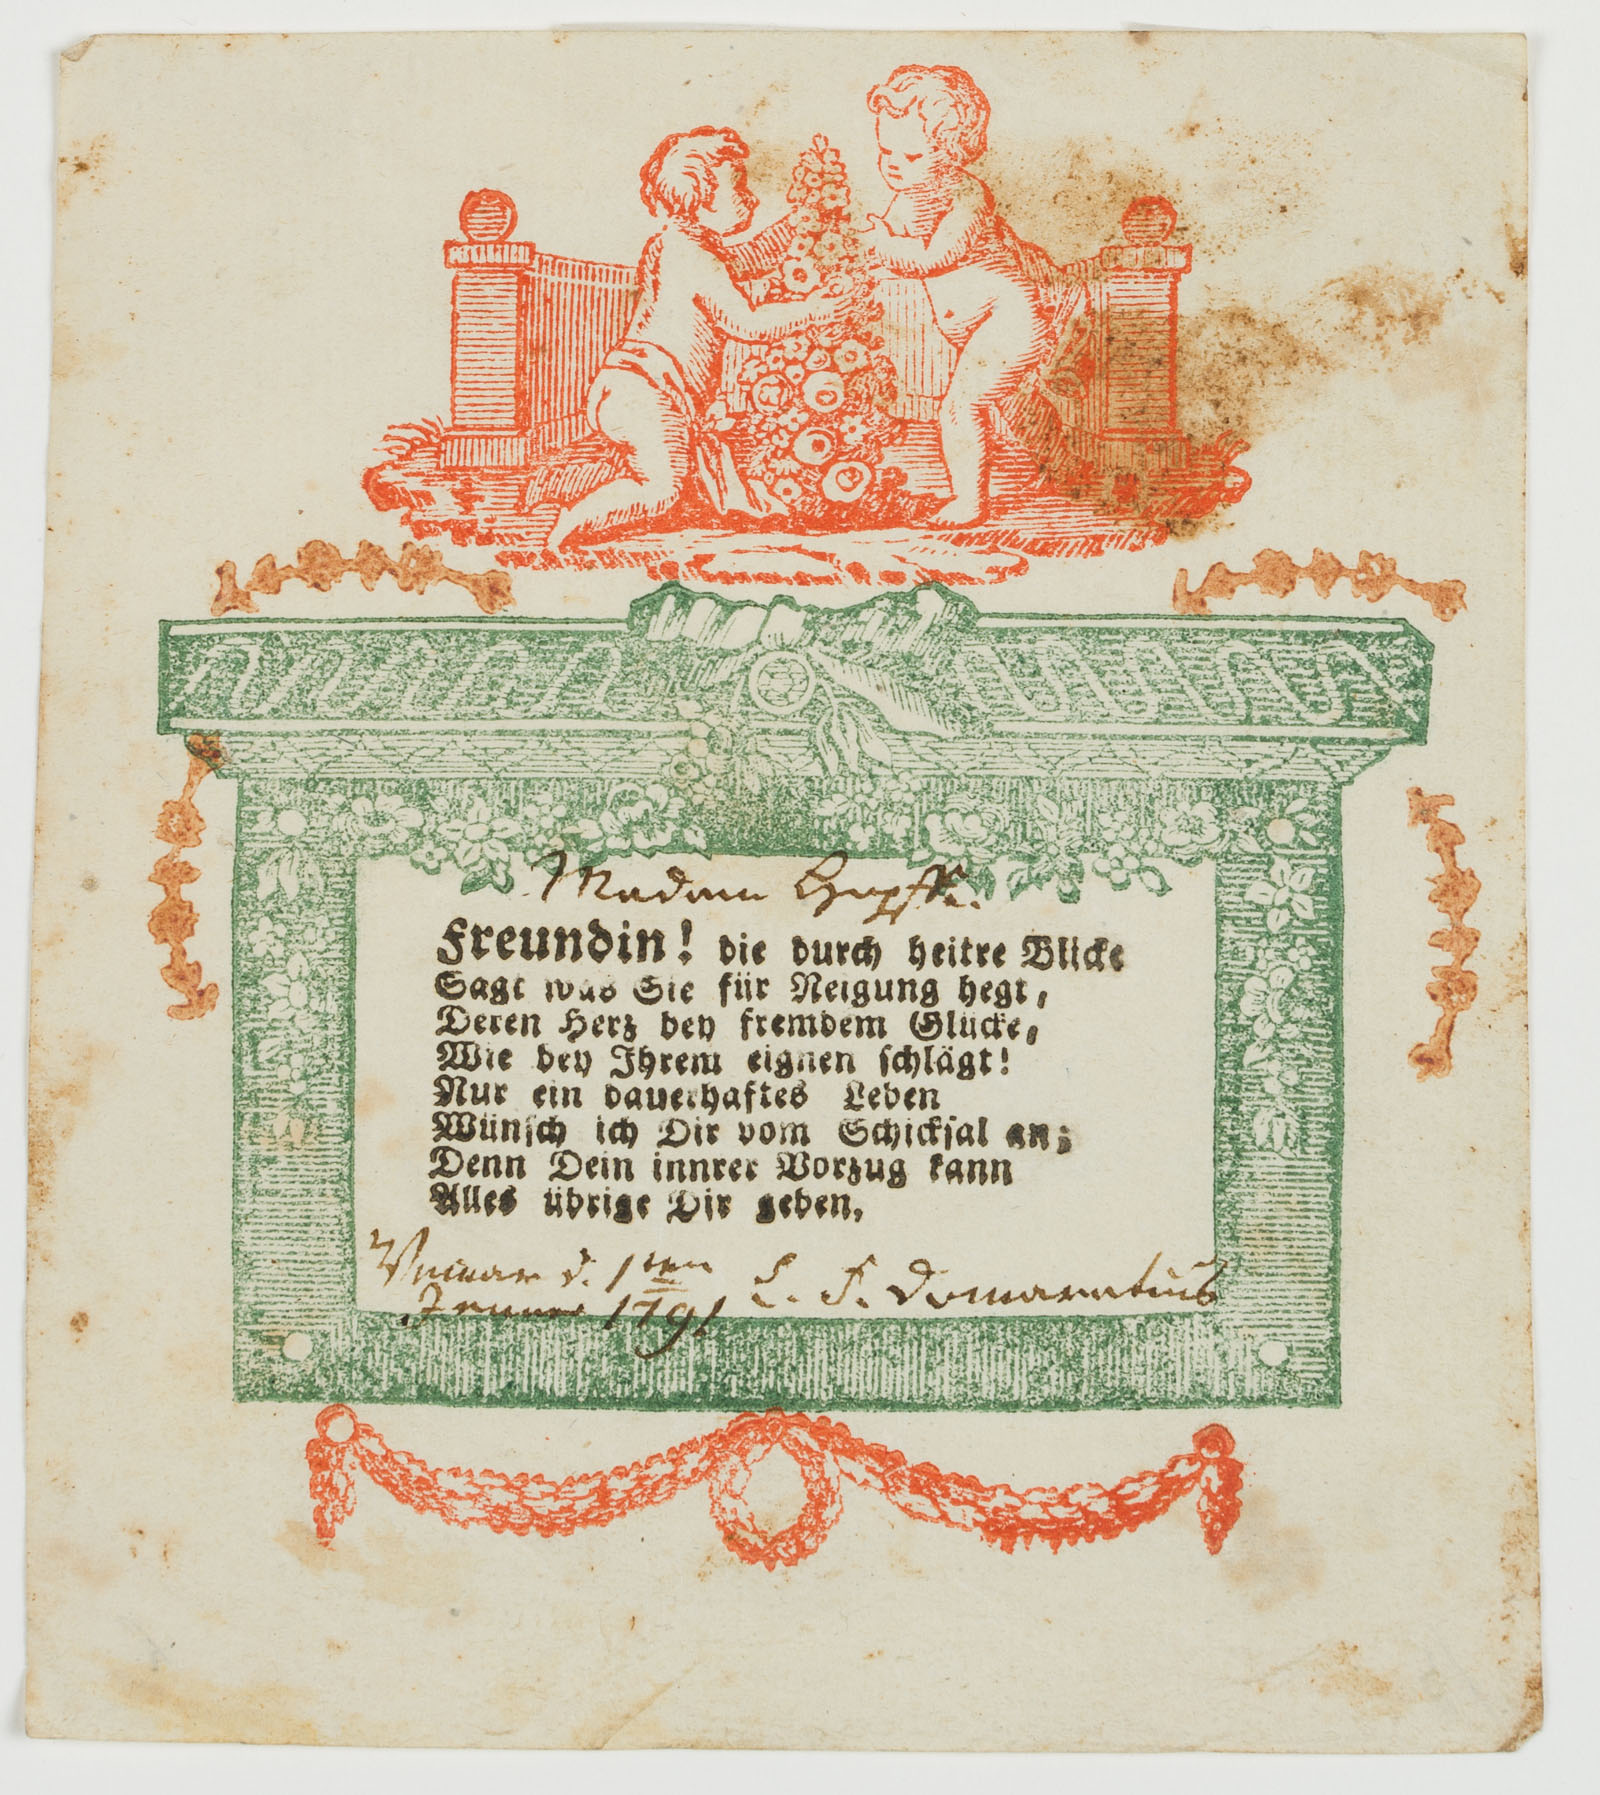 Madam Hopffe.
Freundin! die durch heitre Blicke
Sagt was Sie für Neigung hegt,
Deren Herz bey fremdem Glücke,
Wie bey Ihrem eignen schlägt!
Nur ein dauerhaftes Leben
Wünsch ich Dir vom Schicksal an;
Denn Dein innrer Vorzug kann
Alles übrige Dir geben,
d. 1ten
Januar 1791
L. F. Domaratius